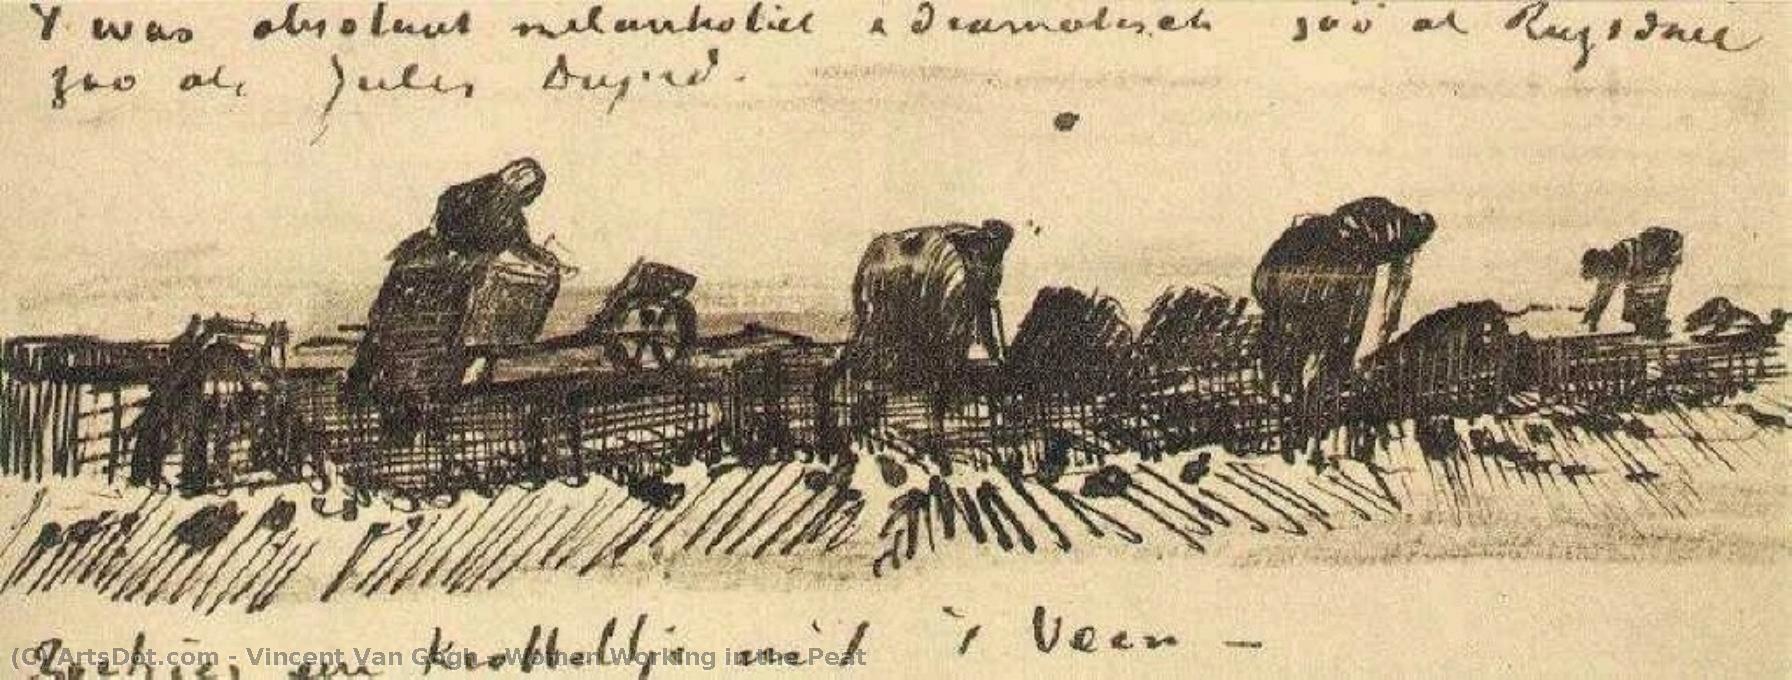 't was absoluut melankoliek & dramatisch zóó als Ruysdael
zóó als Jules Dupré.
Ziehier een krabbeltje uit 't Veen –
(C) ArtsDot.com - Vincent Van Gogh - Women Working in the Peat